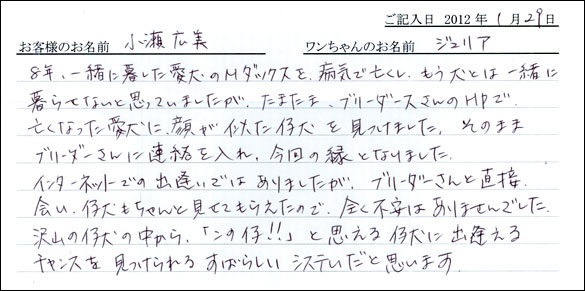 ご記入日 2012年 1月29日
お客様のお名前 小瀬 広美 ワンちゃんのお名前 ジュリア
8年、一緒に暮した愛犬のMダックスを、病気で亡くし、もう犬とは一緒に
暮らせないと思っていましたが、たまたま、ブリーダースさんのHPで、
亡くなった愛犬に、顔が似た仔犬を見つけました。そのまま
ブリーダーさんに連絡を入れ、今回の縁となりました。
インターネットでの出逢いではありましたが、ブリーダーさんと直接、
会い、仔犬もちゃんと見せてもらえたので、全く不安はありませんでした。
沢山の仔犬の中から、「この仔!!」と思える仔犬に出逢える
チャンスを見つけられるすばらしいシステムだと思います。